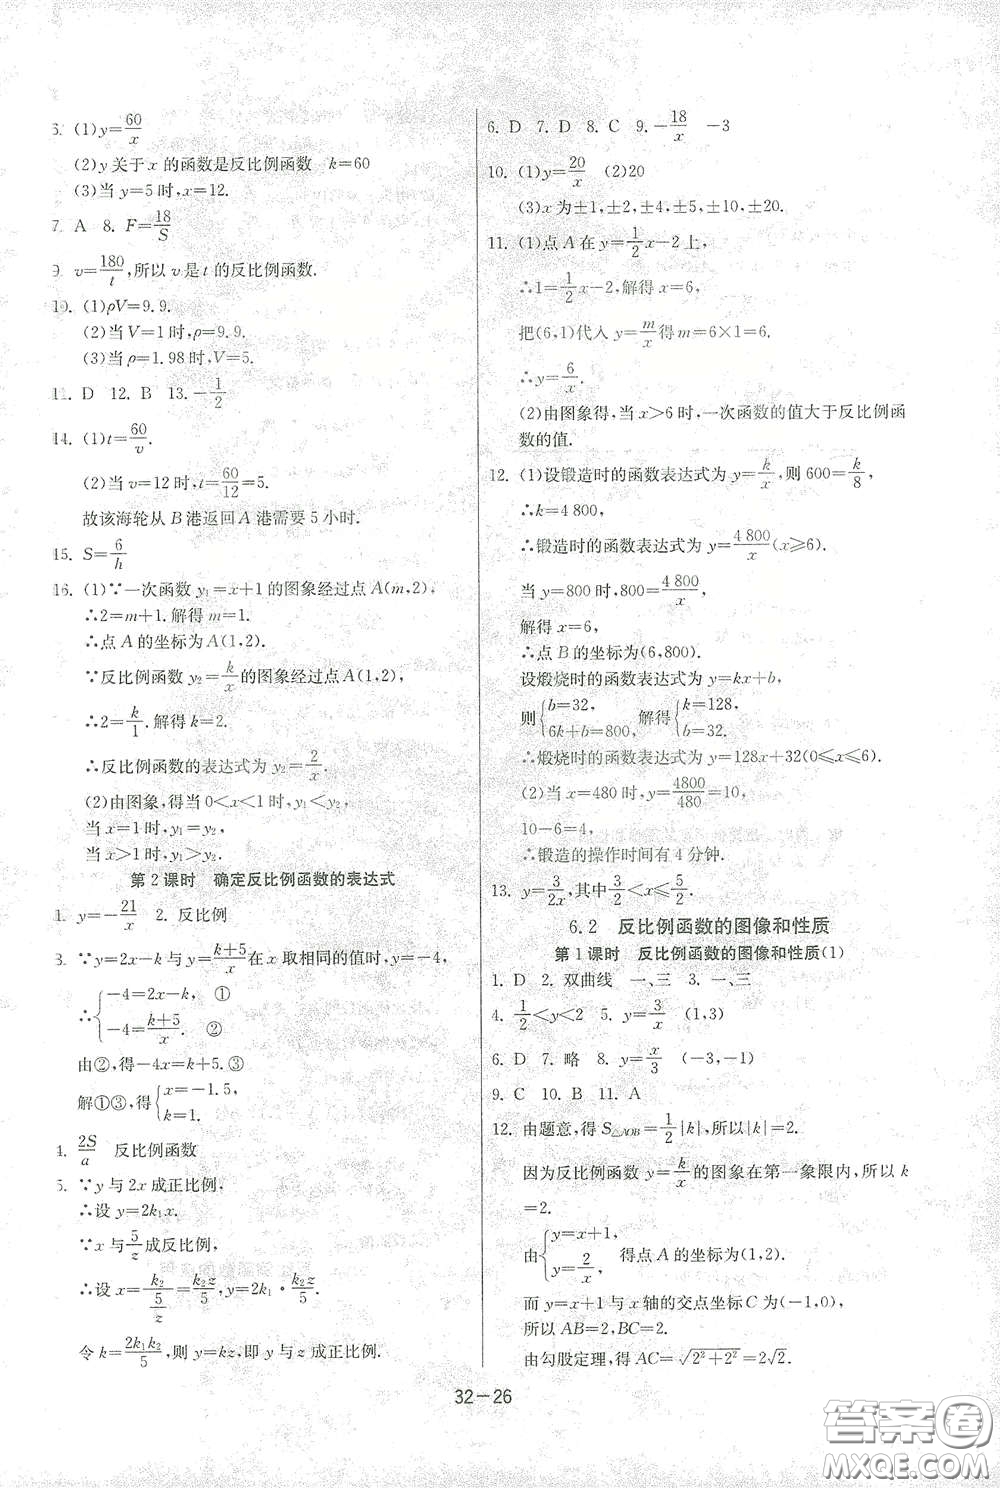 6. (1)y=60/x
(2)y 关于 x 的函数是反比例函数 k=60
(3)当 y=5 时,x=12.
7. A 8. F=18/S
9. v=180/t,所以 v 是 t 的反比例函数.
10. (1)ρV=9.9.
(2)当 V=1 时,ρ=9.9.
(3)当 ρ=1.98 时,V=5.
11. D 12. B 13. -1/2
14. (1)t=60/v.
(2)当 v=12 时,t=60/12=5.
故该海轮从 B 港返回 A 港需要 5 小时.
15. S=6/h
16. (1)∵一次函数 y₁=x+1 的图象经过点 A(m,2),
∴2=m+1.解得 m=1.
∴点 A 的坐标为 A(1,2).
∵反比例函数 y₂=k/x 的图象经过点 A(1,2),
∴2=k/1.解得 k=2.
∴反比例函数的表达式为 y₂=2/x.
(2)由图象,得当 0<x<1 时,y₁<y₂,
当 x=1 时,y₁=y₂,
当 x>1 时,y₁>y₂.
第 2 课时 确定反比例函数的表达式
1. y=-21/x 2. 反比例
3. ∵y=2x-k 与 y=(k+5)/x 在 x 取相同的值时,y=-4,
∴{-4=2x-k, ①
-4=(k+5)/x. ②
由②,得-4x=k+5.③
解①③,得{x=-1.5,
k=1.
4. 2S/a 反比例函数
5. ∵y 与 2x 成正比例,
∴设 y=2k₁x.
∵x 与 5/z 成反比例,
∴设 x=k₂/(5/z)=k₂z/5,y=2k₁·k₂z/5.
令 k=2k₁k₂/5,则 y=kz,即 y 与 z 成正比例.
6. D 7. D 8. C 9. -18/x -3
10. (1)y=20/x (2)20
(3)x 为±1,±2,±4,±5,±10,±20.
11. (1)点 A 在 y=1/2x-2 上,
∴1=1/2x-2,解得 x=6,
把(6,1)代入 y=m/x 得 m=6×1=6.
∴y=6/x.
(2)由图象得,当 x>6 时,一次函数的值大于反比例函
数的值.
12. (1)设锻造时的函数表达式为 y=k/x,则 600=k/8,
∴k=4 800,
∴锻造时的函数表达式为 y=4 800/x(x⩾6).
当 y=800 时,800=4 800/x,
解得 x=6,
∴点 B 的坐标为(6,800).
设煅烧时的函数表达式为 y=kx+b,
则{b=32, 6k+b=800, 解得{k=128, b=32.
∴煅烧时的函数表达式为 y=128x+32(0⩽x⩽6).
(2)当 x=480 时,y=4800/480=10,
10-6=4,
∴锻造的操作时间有 4 分钟.
13. y=3/2x,其中3/2<x⩽5/2.
6.2 反比例函数的图像和性质
第 1 课时 反比例函数的图像和性质(1)
1. D 2. 双曲线 一、三 3. 一、三
4. 1/2<y<2 5. y=3/x (1,3)
6. D 7. 略 8. y=x/3 (-3,-1)
9. C 10. B 11. A
12. 由题意,得 S△AOB=1/2|k|,|k|=2.
因为反比例函数 y=k/x 的图象在第一象限内,所以 k
=2.
由{y=x+1, y=2/x 得点 A 的坐标为(1,2).
而 y=x+1 与 x 轴的交点坐标 C 为(-1,0),
所以 AB=2,BC=2.
由勾股定理,得 AC=√(2²+2²)=2√2.
32-26
答案圈
MXQE.COM